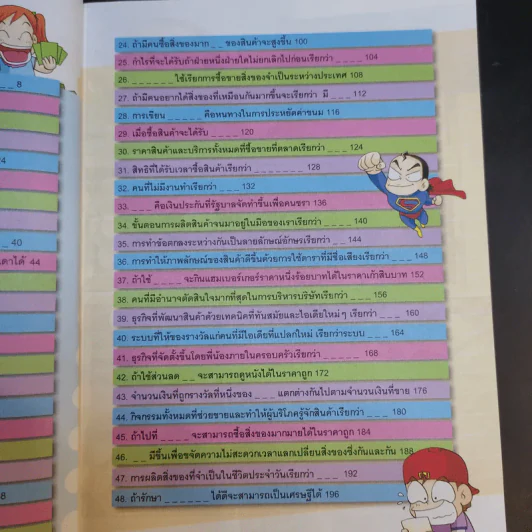 8
24
40
เดาได้ 44
48
24. ถ้ามีคนซื้อสิ่งของมาก _ _ ของสินค้าจะสูงขึ้น 100
25. กำไรที่จะได้รับถ้าฝ่ายหนึ่งฝ่ายใดไม่ยกเลิกไปก่อนเรียกว่า _ _ _ _ 104
26. _ _ _ _ _ _ ใช้เรียกการซื้อขายสิ่งของจำเป็นระหว่างประเทศ 108
27. ถ้ามีคนอยากได้สิ่งของที่เหมือนกันมากขึ้นจะเรียกว่า มี _ _ _ 112
28. การเขียน _ _ _ _ _ คือหนทางในการประหยัดค่าขนม 116
29. เมื่อซื้อสินค้าจะได้รับ _ _ _ _ 120
30. ราคาสินค้าและบริการทั้งหมดที่ซื้อขายที่ตลาดเรียกว่า _ _ _ 124
31. สิทธิที่ได้รับเวลาซื้อสินค้าเรียกว่า _ _ _ _ _ _ _ 128
32. คนที่ไม่มีงานทำเรียกว่า _ _ _ 132
33. _ _ _ คือเงินประกันที่รัฐบาลจัดทำขึ้นเพื่อคนชรา 136
34. ขั้นตอนการผลิตสินค้าจนมาอยู่ในมือของเราเรียกว่า _ _ _ _ 140
35. การทำข้อตกลงระหว่างกันเป็นลายลักษณ์อักษรเรียกว่า _ _ 144
36. การทำให้ภาพลักษณ์ของสินค้าดีขึ้นด้วยการใช้ดาราที่มีชื่อเสียงเรียกว่า _ _ _ 148
37. ถ้าใช้ _ _ _ _ จะกินแฮมเบอร์เกอร์ราคาหนึ่งร้อยบาทได้ในราคาเก้าสิบบาท 152
38. คนที่มีอำนาจตัดสินใจมากที่สุดในการบริหารบริษัทเรียกว่า _ _ _ 156
39. ธุรกิจที่พัฒนาสินค้าด้วยเทคนิคที่ทันสมัยและไอเดียใหม่ๆ เรียกว่า _ _ _ _ 160
40. ระบบที่ให้ของรางวัลแก่คนที่มีไอเดียที่แปลกใหม่ เรียกว่าระบบ _ _ _ 164
41. ธุรกิจที่จัดตั้งขึ้นโดยพี่น้องภายในครอบครัวเรียกว่า _ _ _ _ _ 168
42. ถ้าใช้ส่วนลด _ _ จะสามารถดูหนังได้ในราคาถูก 172
43. จำนวนเงินที่ถูกรางวัลที่หนึ่งของ _ _ _ แตกต่างกันไปตามจำนวนเงินที่ขาย 176
44. กิจกรรมทั้งหมดที่ช่วยขายและทำให้ผู้บริโภครู้จักสินค้าเรียกว่า _ _ _ 180
45. ถ้าไปที่ _ _ _ _ จะสามารถซื้อสิ่งของมากมายได้ในราคาถูก 184
46. _ _ มีขึ้นเพื่อขจัดความไม่สะดวกเวลาแลกเปลี่ยนสิ่งของซึ่งกันและกัน 188
47. การผลิตสิ่งของที่จำเป็นในชีวิตประจำวันเรียกว่า _ _ _ 192
48. ถ้ารักษา _ _ _ _ _ _ ได้ดีจะสามารถเป็นเศรษฐีได้ 196